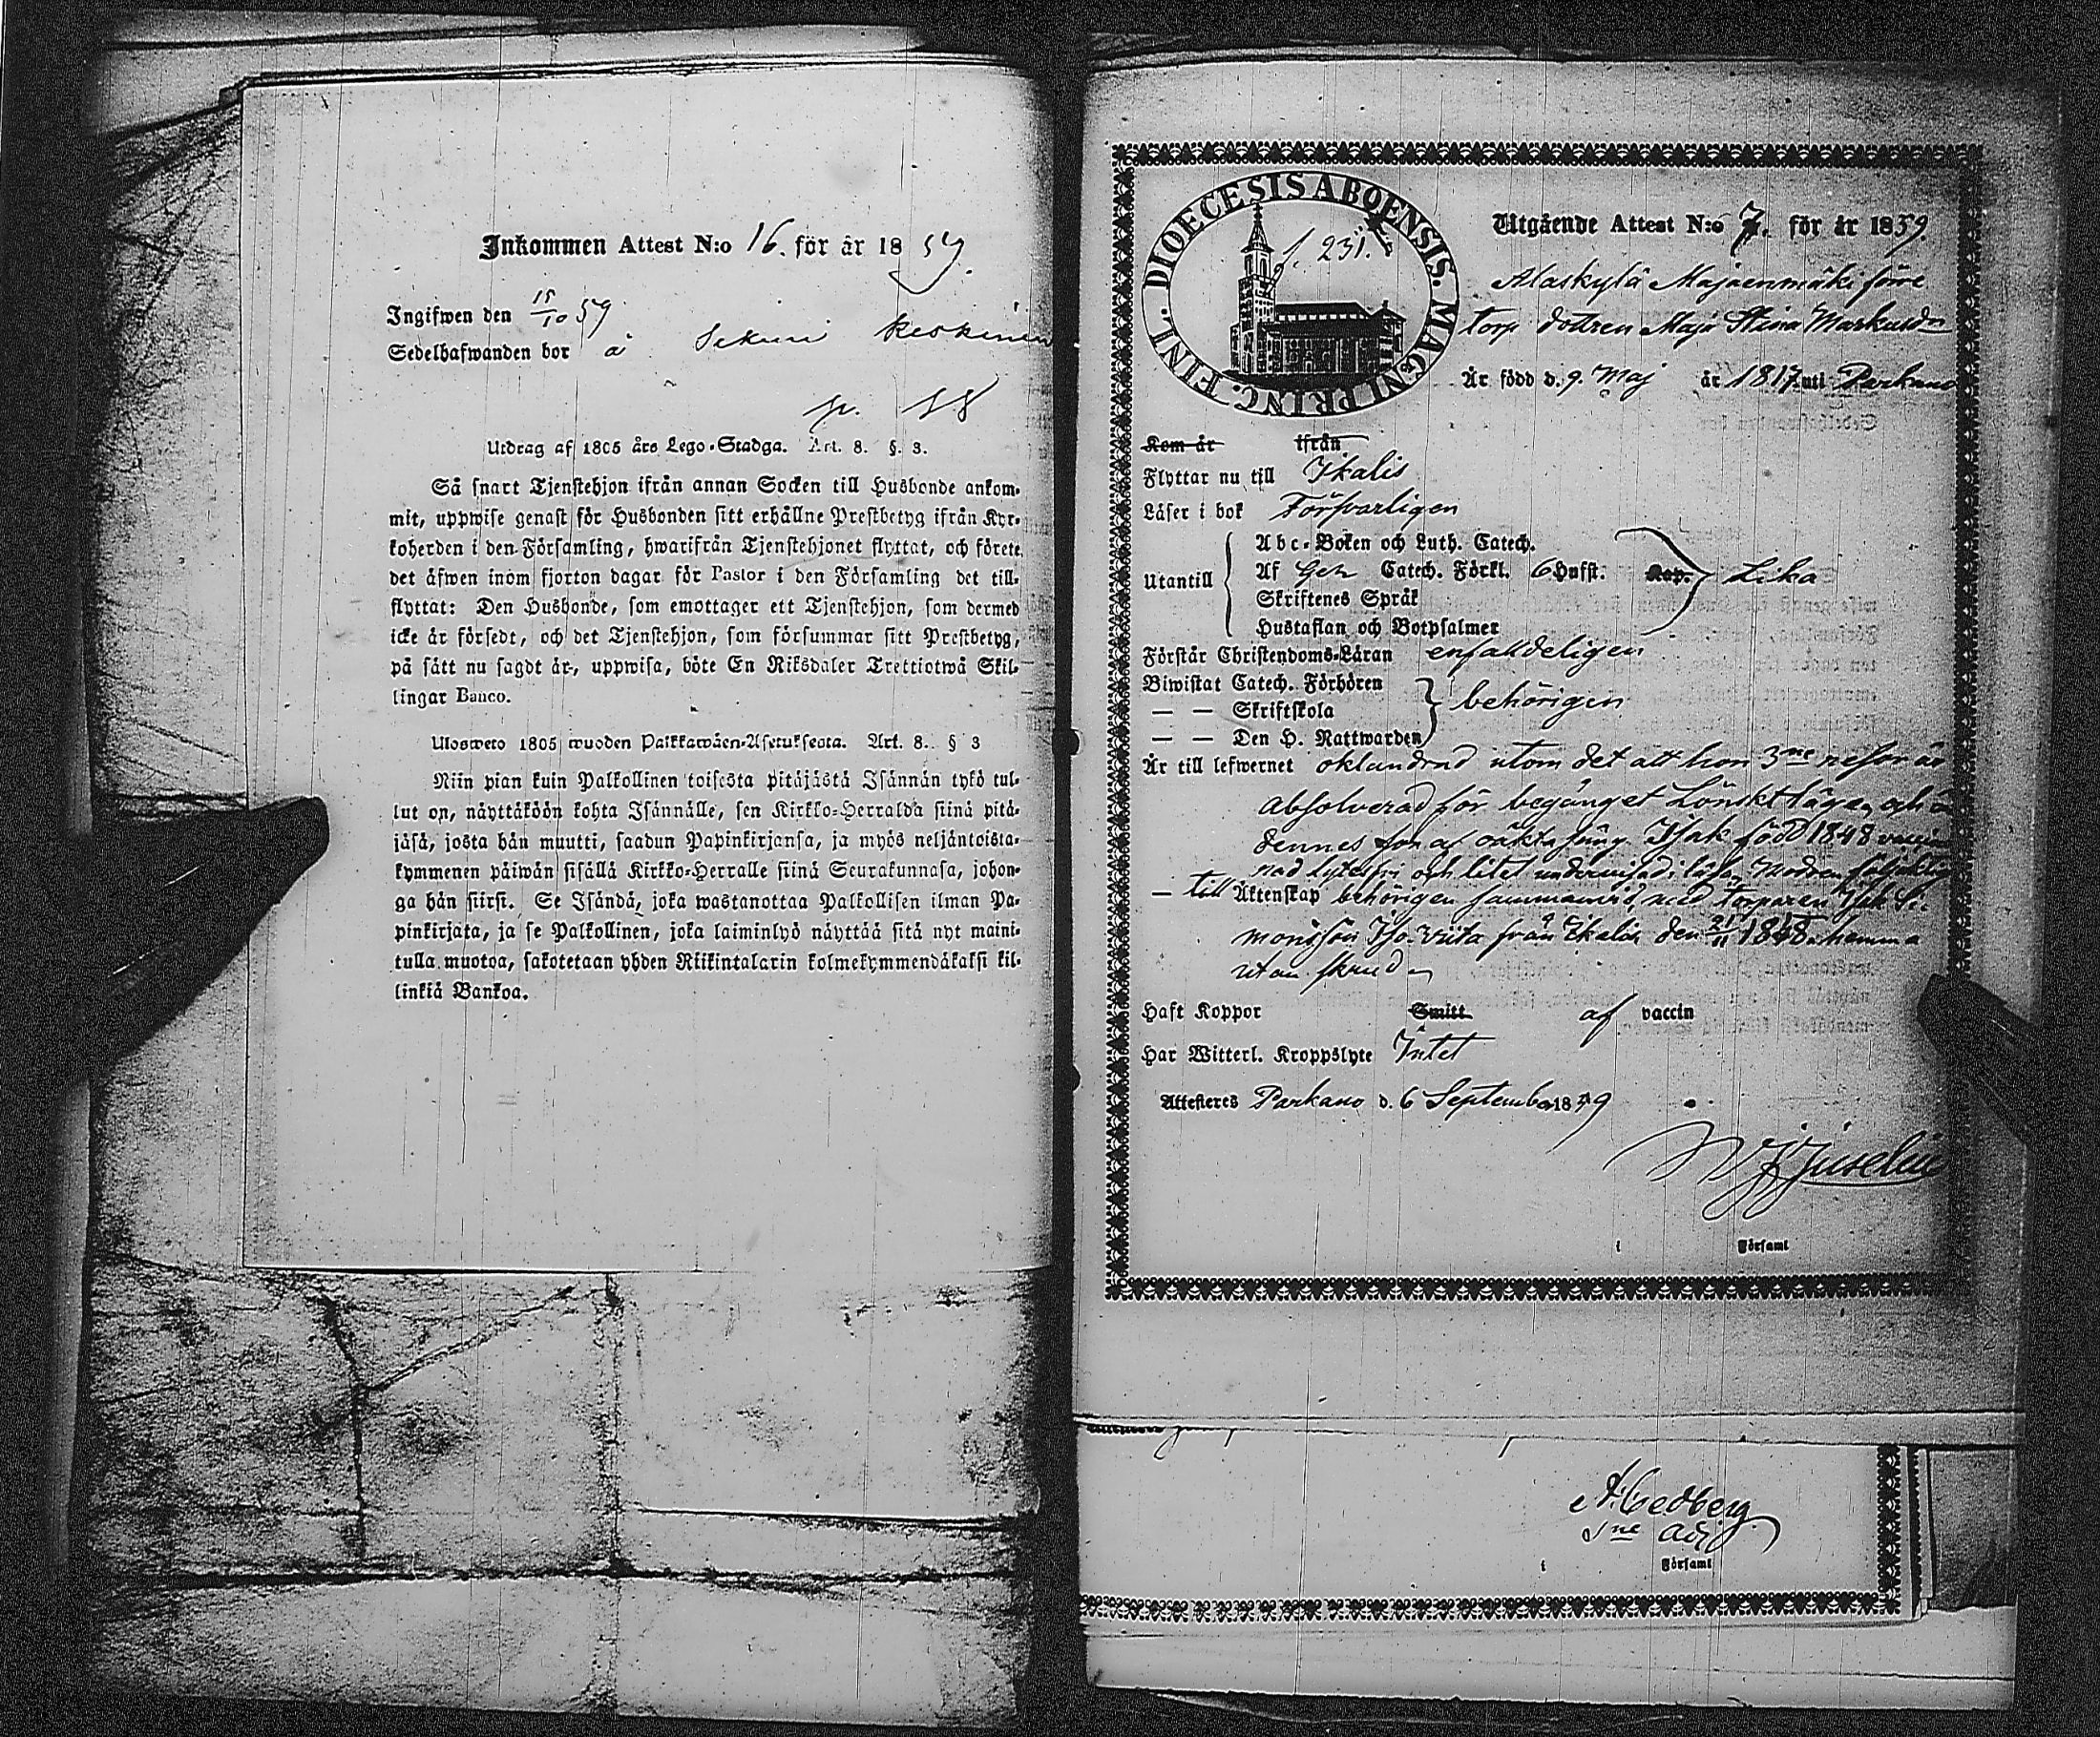 Inkommen Attest N:o 16. för år 1859.
Ingifwen den 15/10 59
Sedelhafwanden bor å Sikuri Keskinen
p. 58
Utdrag af 1805 års Lego-Stadga. Art. 8. §. 3.
Så snart Tjenstehjon ifrån annan Socken till Husbonde ankom-
mit, uppwise genast för Husbonden sitt erhållne Prestbetyg ifrån Kyr-
koherden i den Församling, hwarifrån Tjenstehjonet flyttat, och förete
det äfwen inom fjorton dagar för Pastor i den Församling det till-
flyttat: Den Husbonde, som emottager ett Tjenstehjon, som dermed
icke är försedt, och det Tjenstehjon, som försummar sitt Prestbetyg,
på sätt nu sagdt är, uppwisa, böte En Riksdaler Trettiotwå Skil-
lingar Banco.
Ulosweto 1805 wuoden Palkkawäen-Asetuksesta. Art. 8. § 3
Niin pian kuin Palkollinen toisesta pitäjästä Isännän tykö tul-
lut on, näyttäköön kohta Isännälle, sen Kirkko-Herralda siinä pitä-
jäsä, josta hän muutti, saadun Papinkirjansa, ja myös neljäntoista-
kymmenen päiwän sisällä Kirkko-Herralle siinä Seurakunnasa, johon-
ga hän siirsi. Se Isändä, joka wastanottaa Palkollisen ilman Pa-
pinkirjata, ja se Palkollinen, joka laiminlyö näyttää sitä nyt maini-
tulla muotoa, sakotetaan yhden Riikintalarin kolmekymmendäkaksi kil-
linkiä Bankoa.
DIOECESIS ABOENSIS. MAGNI PRINC. FINL.
f. 231.
Utgående Attest N:o 7. för år 1859.
Alaskylä Majaenmäki förre
torp dottren Maja Stina Markusd
Är född d. 9. Maj år 1817 uti Parkano
Kom år ifrån
Flyttar nu till Ikalis
Läser i bok Försvarligen
Utantill
Abc-Boken och Luth. Catech.
Af Gez Catech. Förkl. 6 Hufst. Kap. Lika
Skriftenes Språk
Hustaflan och Botpsalmer
Förstår Christendoms-Läran enfaldeligen
Biwistat Catech. Förhören
— — Skriftskola behörigen
— — Den H. Nattwarden
Är till lefwernet oklandrad utom det att hon 3ne resor är
absolverad för begånget Lönskeläge, och
dennes son af oäkta säng Isak född 1848 vacci
nad lytesfri och litet undervisad i läsa, Modren
— till Äktenskap behörigen sammanvid, med torparen Isak Si-
monsson Iso-Viita från Ikalis den 21/11 1848. hemma
utan skrud
Haft Koppor Smitt af vaccin
Har Witterl. Kroppslyte Intet
Attesteres Parkano d. 6 September 1859
W J Juselius
i Församl
A. Cedberg
i Församl